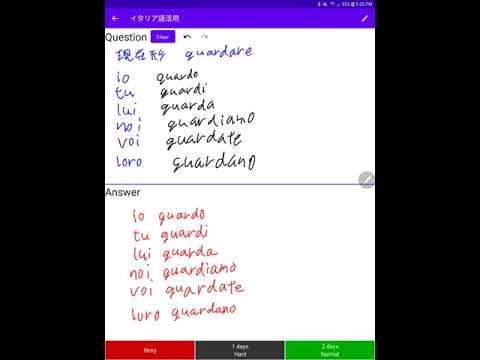 95% 5:05 PM
← イタリア語活用
Question Clear
現在形 guardare
io guardo
tu guardi
lui guarda
noi guardiamo
voi guardate
loro guardano
Answer
io guardo
tu guardi
lui guarda
noi guardiamo
voi guardate
loro guardano
Retry
1 days
Hard
2 days
Normal